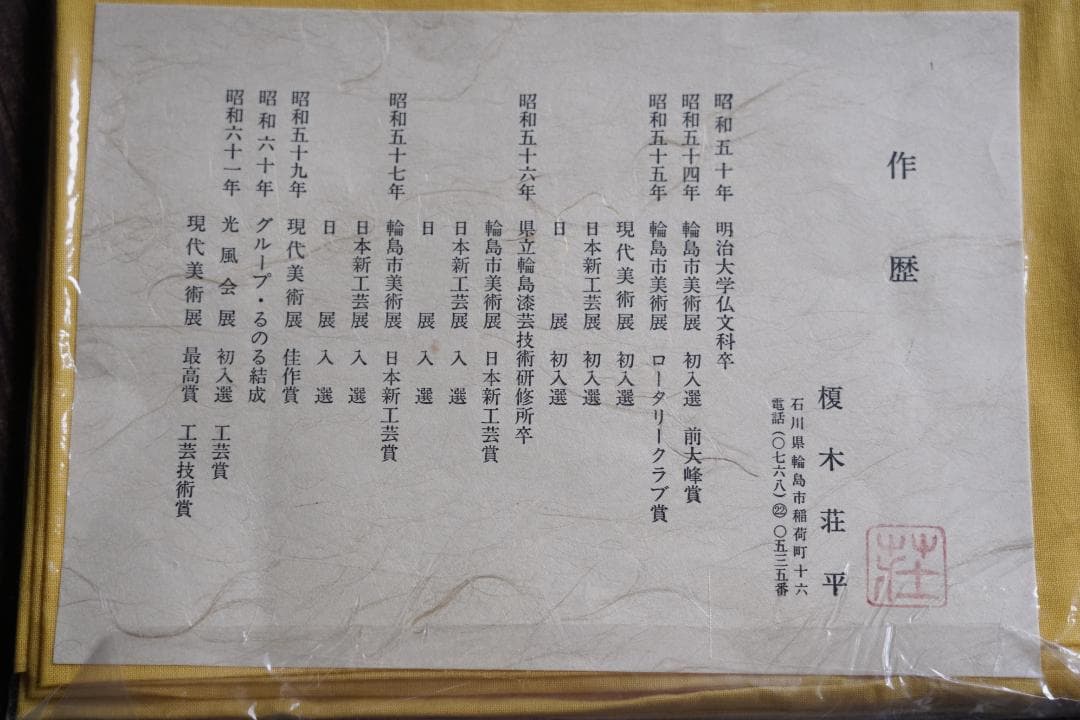 作歴
榎木荘平
石川県輪島市稲荷町十六
電話(〇七六八)㉒〇五三五番
荘
昭和五十年 明治大学仏文科卒
昭和五十四年 輪島市美術展 初入選 前大峰賞
昭和五十五年 輪島市美術展 ロータリークラブ賞
現代美術展 初入選
日本新工芸展 初入選
日展 初入選
昭和五十六年 県立輪島漆芸技術研修所卒
輪島市美術展 日本新工芸賞
日本新工芸展 入選
日展 入選
昭和五十七年 輪島市美術展 日本新工芸賞
日本新工芸展 入選
日展 入選
昭和五十九年 現代美術展 佳作賞
昭和六十年 グループ・るのる結成
昭和六十一年 光風会展 初入選 工芸賞
現代美術展 最高賞 工芸技術賞